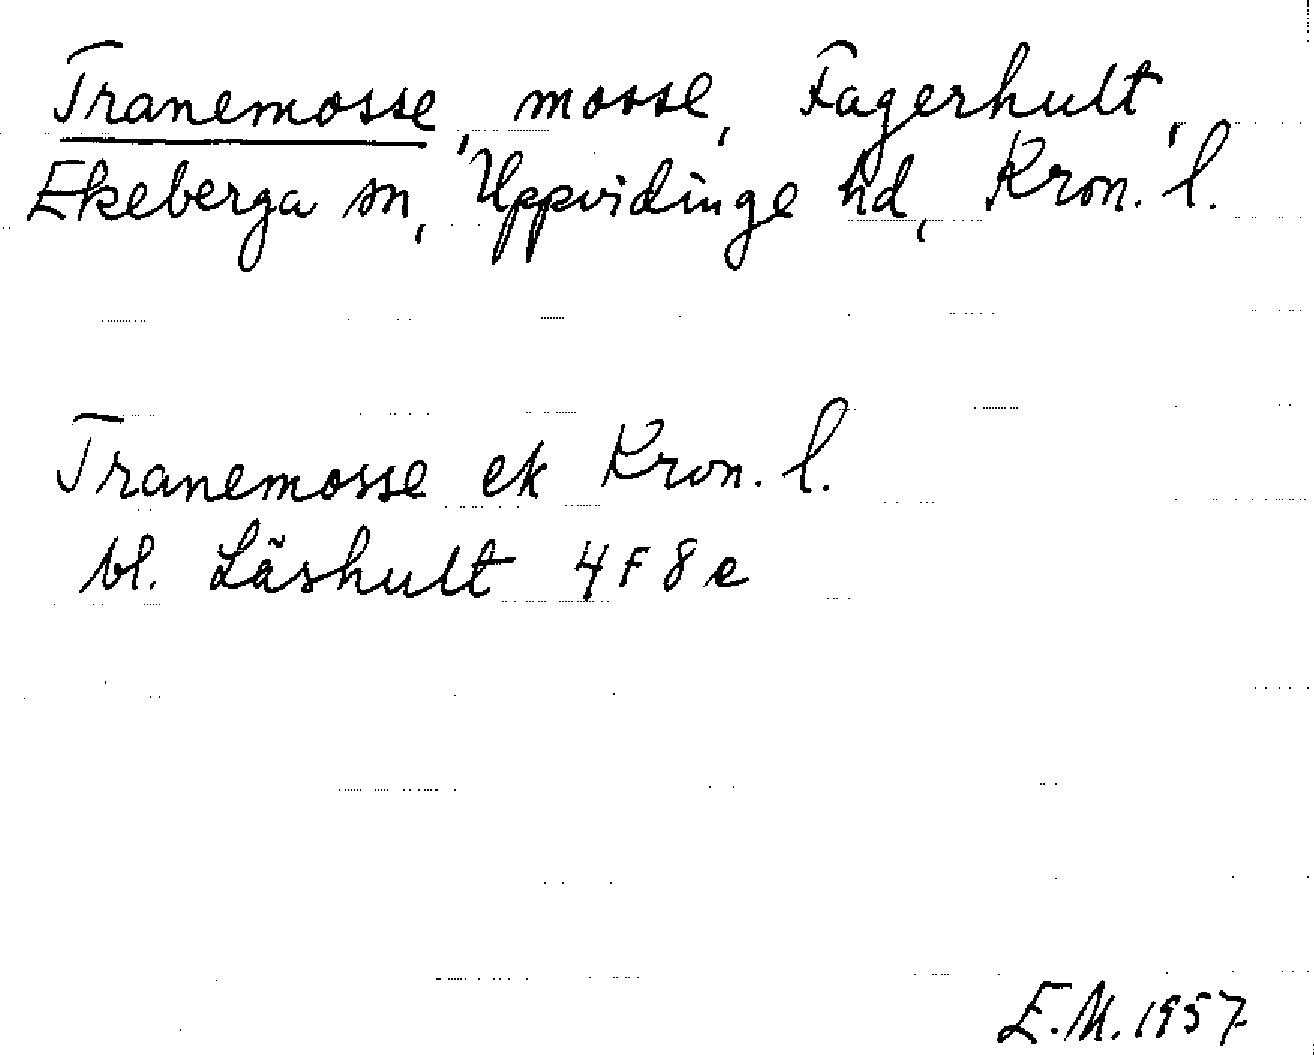 Tranemosse, mosse, Fagerhult,
Ekeberga sn, Uppvidinge hd, Kron. l.
Tranemosse ek Kron. l.
bl. Läshult 4F8e
E.M. 1957